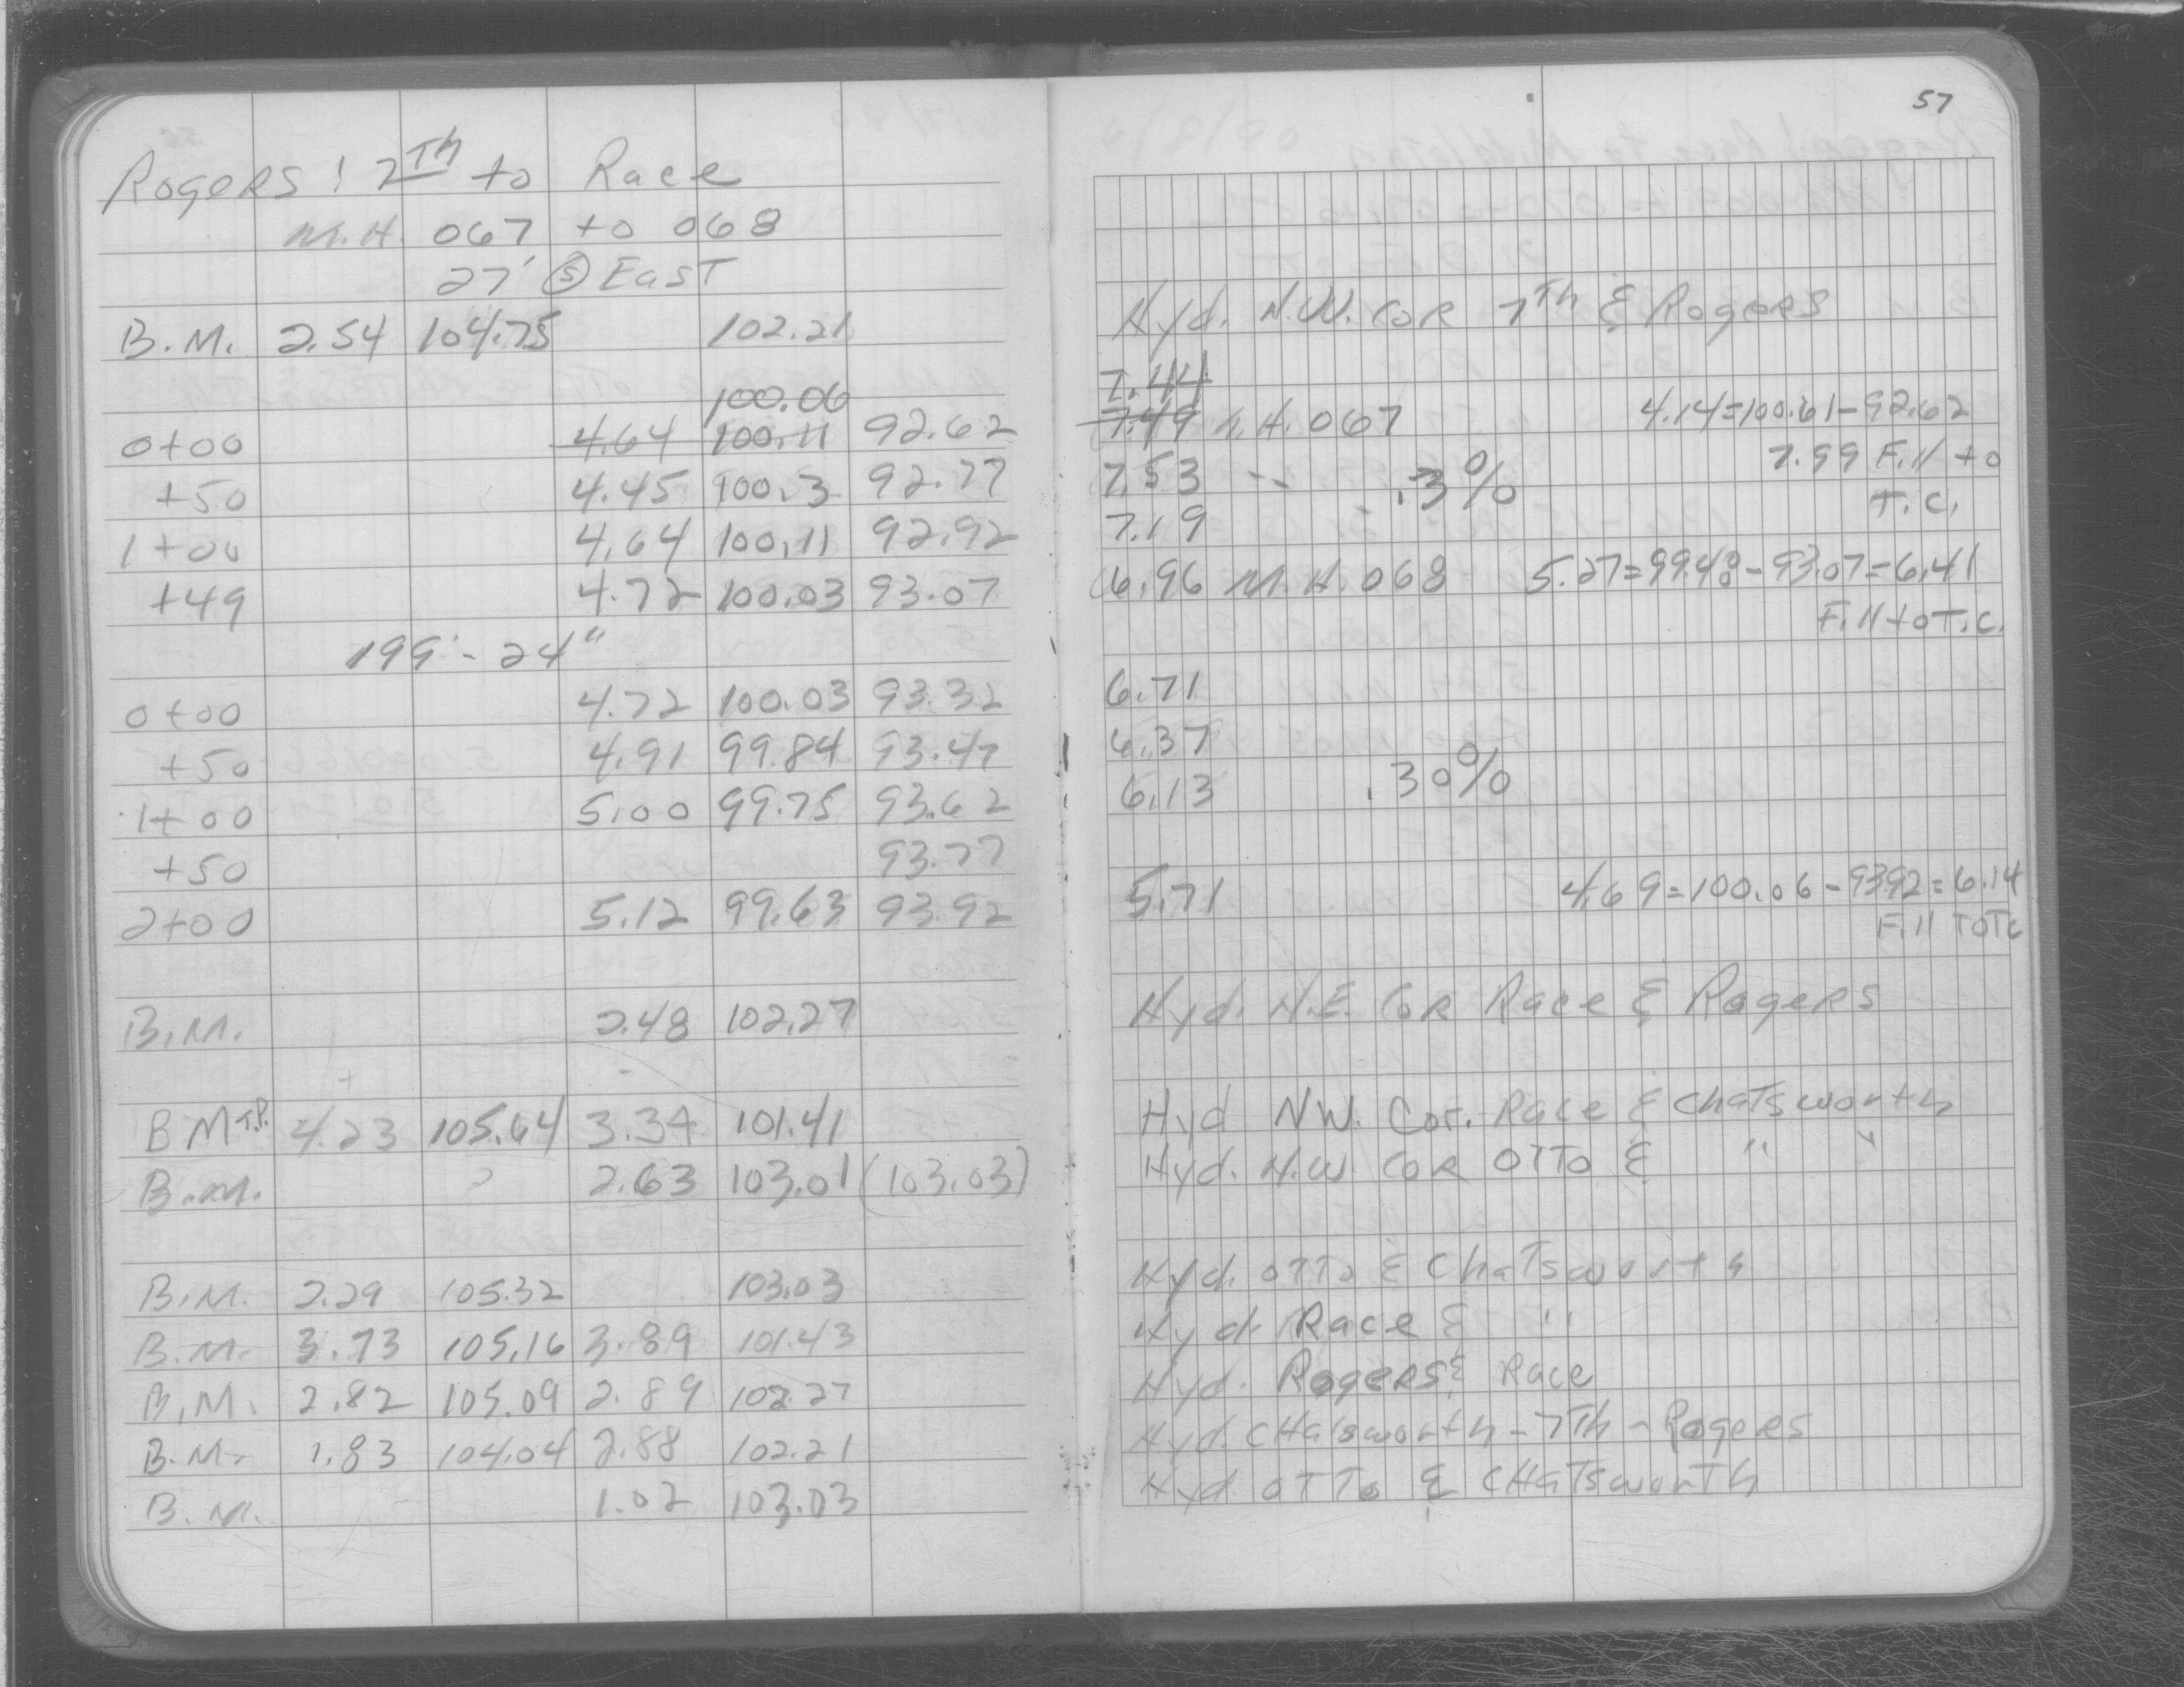 57
Rogers: 7th to Race
M.H. 067 to 068
27' Ⓢ East
B.M. 2.54 104.75 102.21 Hyd. N.W. Cor 7th & Rogers
100.06 7.44
0+00 4.64 100.11 92.62 7.49 M.H. 067 4.14=100.61-92.62
+50 4.45 100.3 92.77 7.53 -- .3% 7.99 Fill to
1+00 4.64 100.11 92.92 7.19 T.C.
+49 4.72 100.03 93.07 6.96 M.H. 068 5.27=99.48-93.07=6.41
Fill to T.C.
199' - 24"
0+00 4.72 100.03 93.32 6.71
+50 4.91 99.84 93.47 6.37
1+00 5.00 99.75 93.62 6.13 .30%
+50 93.77
2+00 5.12 99.63 93.92 5.71 4.69=100.06-93.92=6.14
Fill To TC
B.M. 2.48 102.27 Hyd. N.E. Cor Race & Rogers
+ -
BM T.P. 4.23 105.64 3.34 101.41 Hyd NW. Cor. Race & Chatsworth
B.M. 2.63 103.01 (103.03) Hyd. N.W Cor OTTO & " "
B.M. 2.29 105.32 103.03 Hyd. OTTO & Chatsworth
B.M. 3.73 105.16 3.89 101.43 Hyd. Race & "
B.M. 2.82 105.09 2.89 102.27 Hyd. Rogers & Race
B.M. 1.83 104.04 2.88 102.21 Hyd. CHatsworth - 7Th - Rogers
B.M. 1.02 103.03 Hyd. OTTo & CHATSworTh